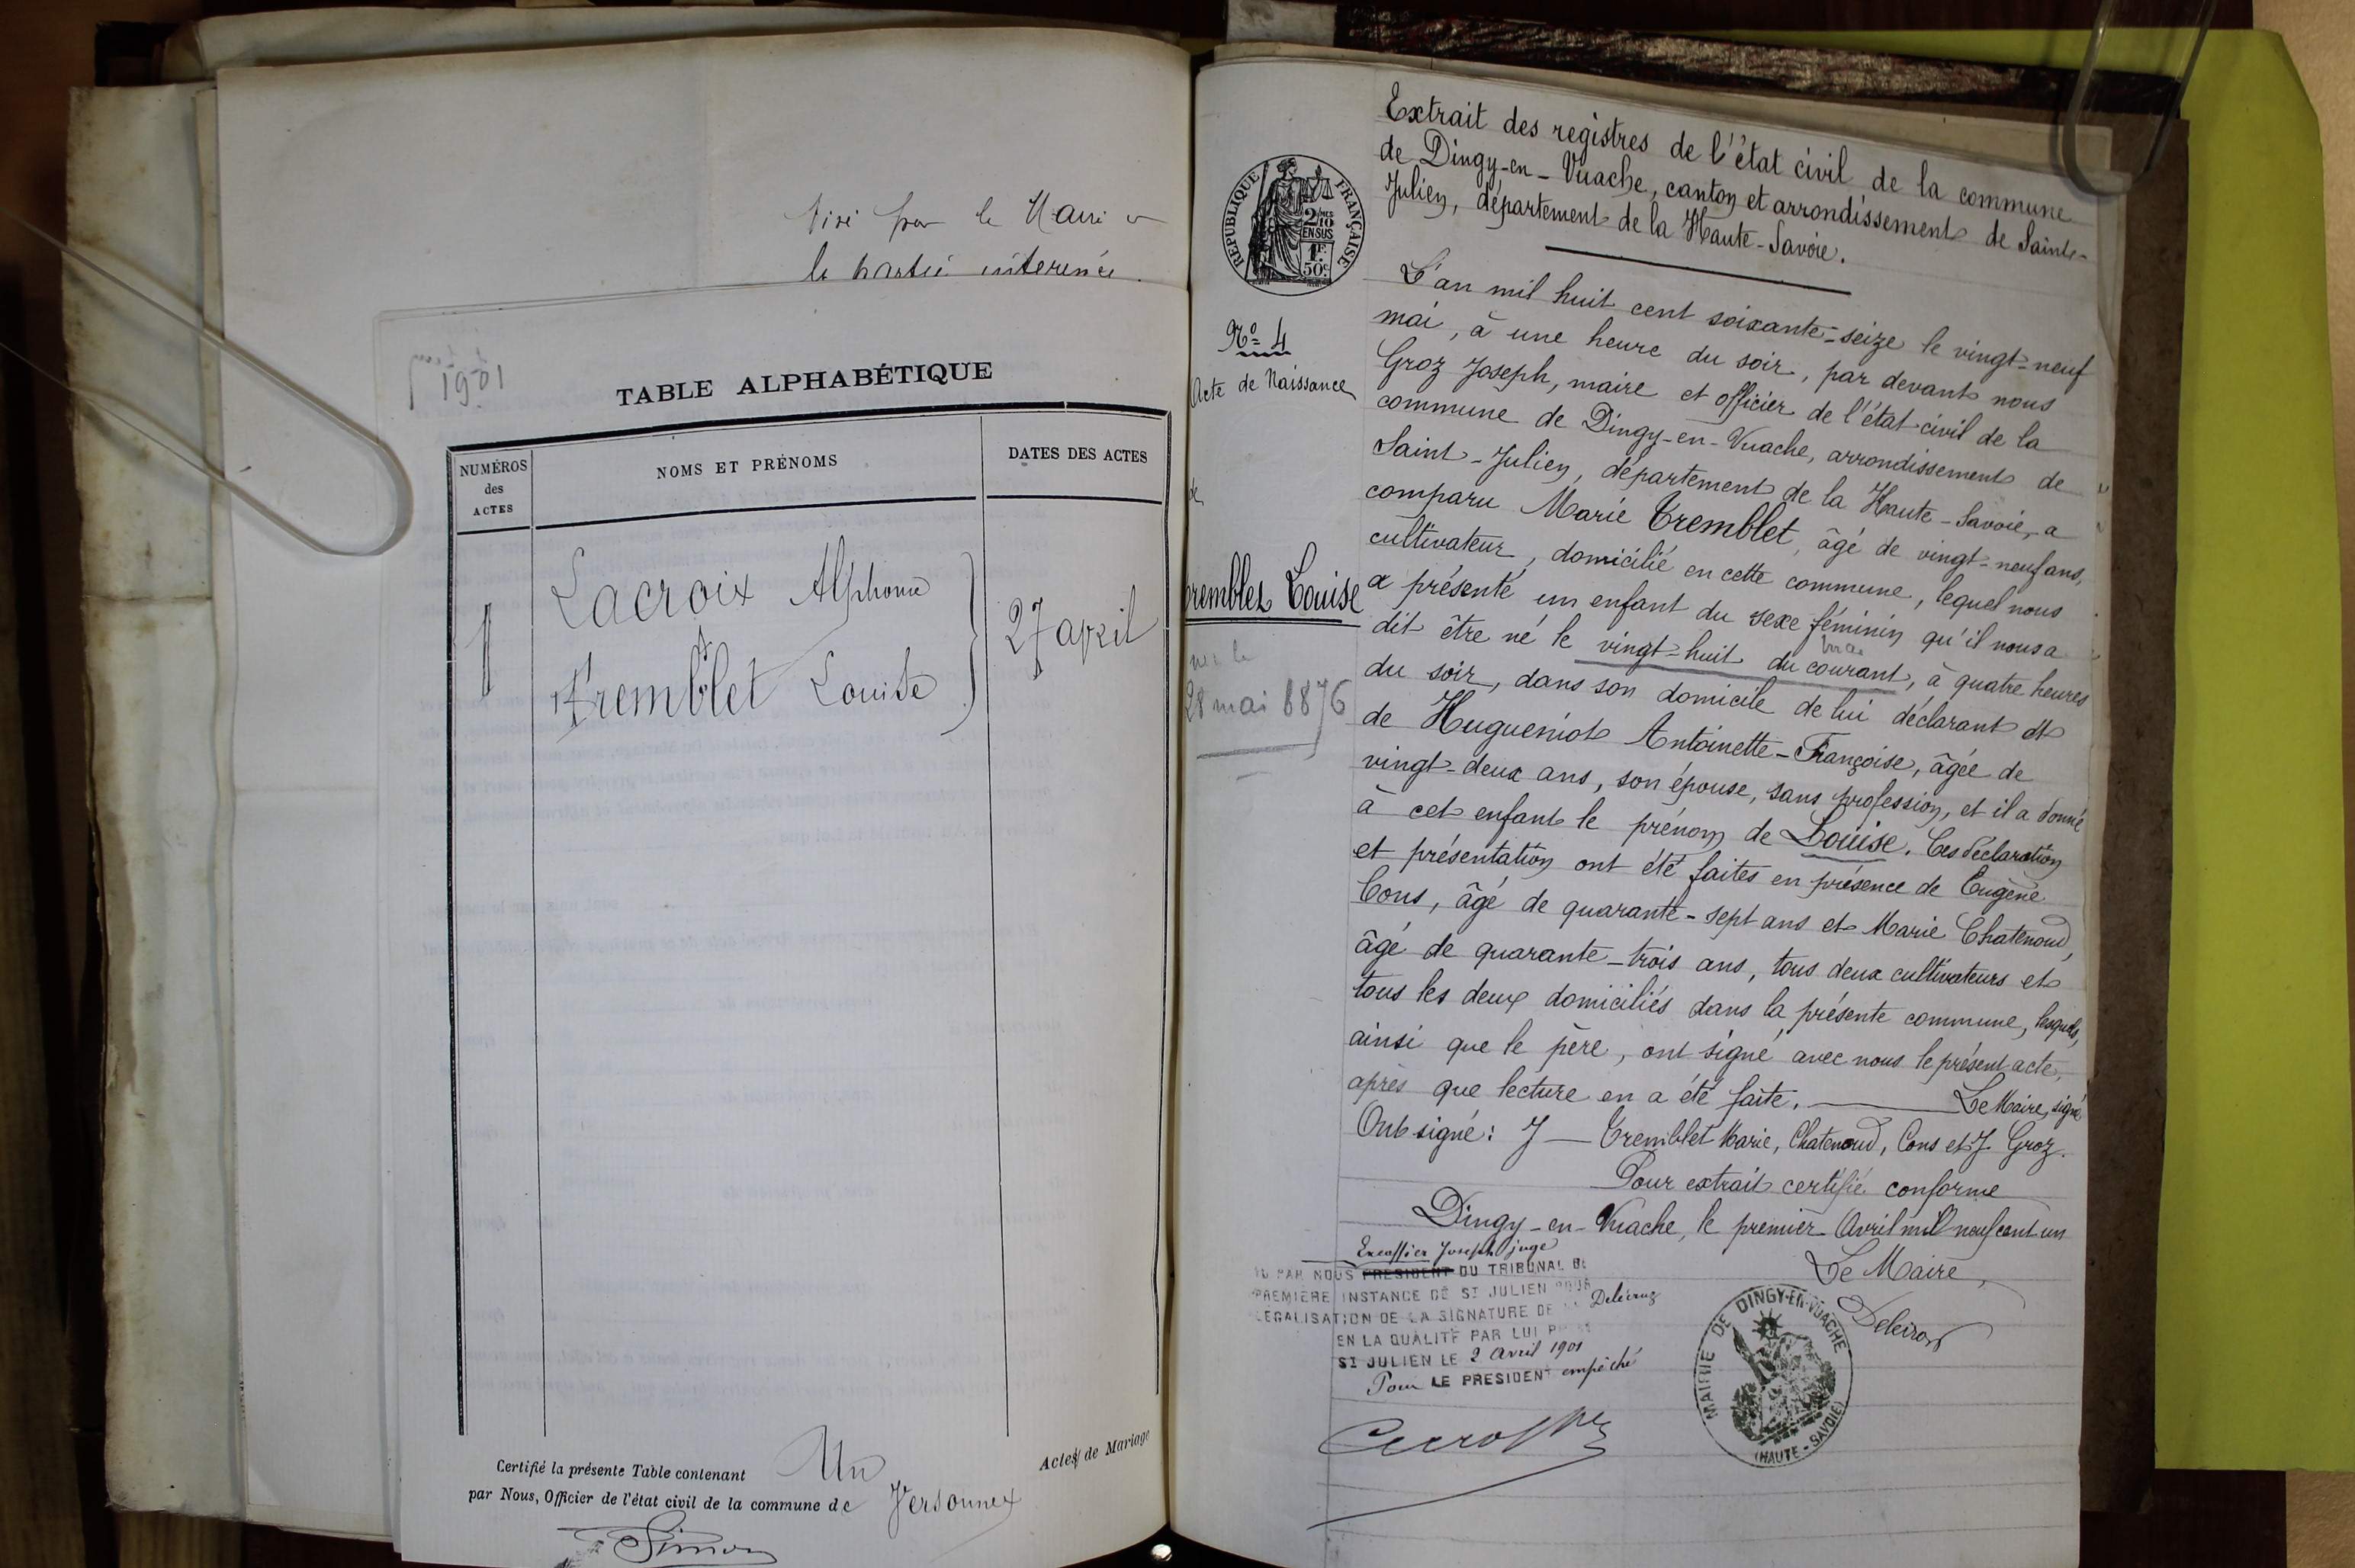 le Maire
1901
TABLE ALPHABÉTIQUE
NUMÉROS
des
ACTES
NOMS ET PRÉNOMS
DATES DES ACTES
1
Lacroix Alphonse
&
Tremblet Louise
27 avril
Certifié la présente Table contenant Un Actes de Mariage
par Nous, Officier de l'état civil de la commune de Versonnex
Simon
Extrait des registres de l'état civil de la commune
de Dingy-en-Vuache, canton et arrondissement de Saint-
Julien, département de la Haute-Savoie.
RÉPUBLIQUE FRANÇAISE
2/10 EN SUS
1F. 50c
N° 4
Acte de Naissance
de
Tremblet Louise
née le
28 mai 1876
L'an mil huit cent soixante-seize le vingt-neuf
mai, à une heure du soir, par devant nous
Groz Joseph, maire et officier de l'état civil de la
commune de Dingy-en-Vuache, arrondissement de
Saint-Julien, département de la Haute-Savoie, a
comparu Marie Tremblet, âgé de vingt-neuf ans,
cultivateur, domicilié en cette commune, lequel nous
a présenté un enfant du sexe féminin qu'il nous a
dit être né le vingt-huit du courant, à quatre heures
du soir, dans son domicile de lui déclarant et
de Hugueniot Antoinette-Françoise, âgée de
vingt-deux ans, son épouse, sans profession, et il a donné
à cet enfant le prénom de Louise. Ces déclaration
et présentation ont été faites en présence de Eugène
Cons, âgé de quarante-sept ans et Marie Chatenoud,
âgé de quarante-trois ans, tous deux cultivateurs et
tous les deux domiciliés dans la présente commune, lesquels,
ainsi que le père, ont signé avec nous le présent acte,
après que lecture en a été faite. Le Maire, signé
Ont signé: J — Tremblet Marie, Chatenoud, Cons et J. Groz.
Pour extrait certifié conforme
Dingy-en-Vuache, le premier Avril mil neuf cent un
Le Maire,
Excoffier Joseph juge
PAR NOUS PRESIDENT DU TRIBUNAL DE
PREMIERE INSTANCE DE ST JULIEN POUR
LEGALISATION DE LA SIGNATURE DE
EN LA QUALITE PAR LUI
ST JULIEN LE 2 avril 1901
Pour LE PRESIDENT empêché
MAIRIE DE DINGY-EN-VUACHE
(HAUTE-SAVOIE)